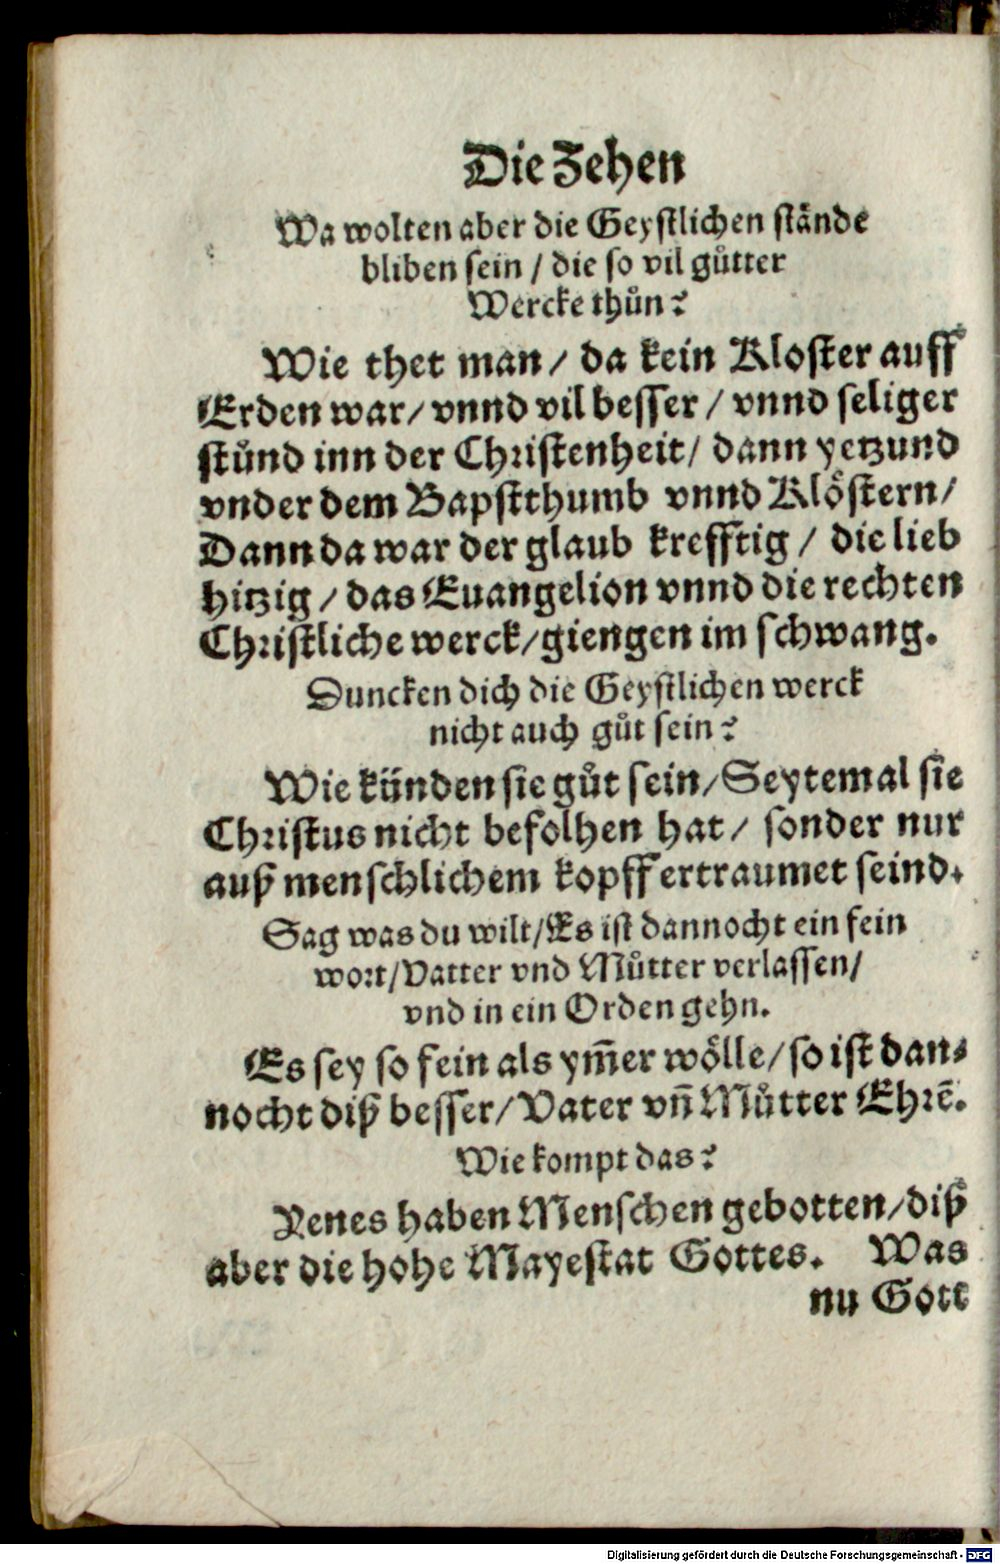 Die Zehen
Wa wolten aber die Geystlichen stånde
bliben sein / die so vil gůtter
Wercke thůn?
Wie thet man / da kein Kloster auff
Erden war / vnnd vil besser / vnnd seliger
stůnd inn der Christenheit / dann yetzund
vnder dem Bapstthumb vnnd Klöstern /
Dann da war der glaub krefftig / die lieb
hitzig / das Euangelion vnnd die rechten
Christliche werck / giengen im schwang.
Duncken dich die Geystlichen werck
nicht auch gůt sein?
Wie künden sie gůt sein / Seytemal sie
Christus nicht befolhen hat / sonder nur
auß menschlichem kopff ertraumet seind.
Sag was du wilt / Es ist dannocht ein fein
wort / Vatter vnd Můtter verlassen /
vnd in ein Orden gehn.
Es sey so fein als ym̃er wölle / so ist dan⸗
nocht diß besser / Vater vñ Můtter Ehrẽ.
Wie kompt das?
Yenes haben Menschen gebotten / diß
aber die hohe Mayestat Gottes. Was
nu Gott
Digitalisierung gefördert durch die Deutsche Forschungsgemeinschaft - DFG